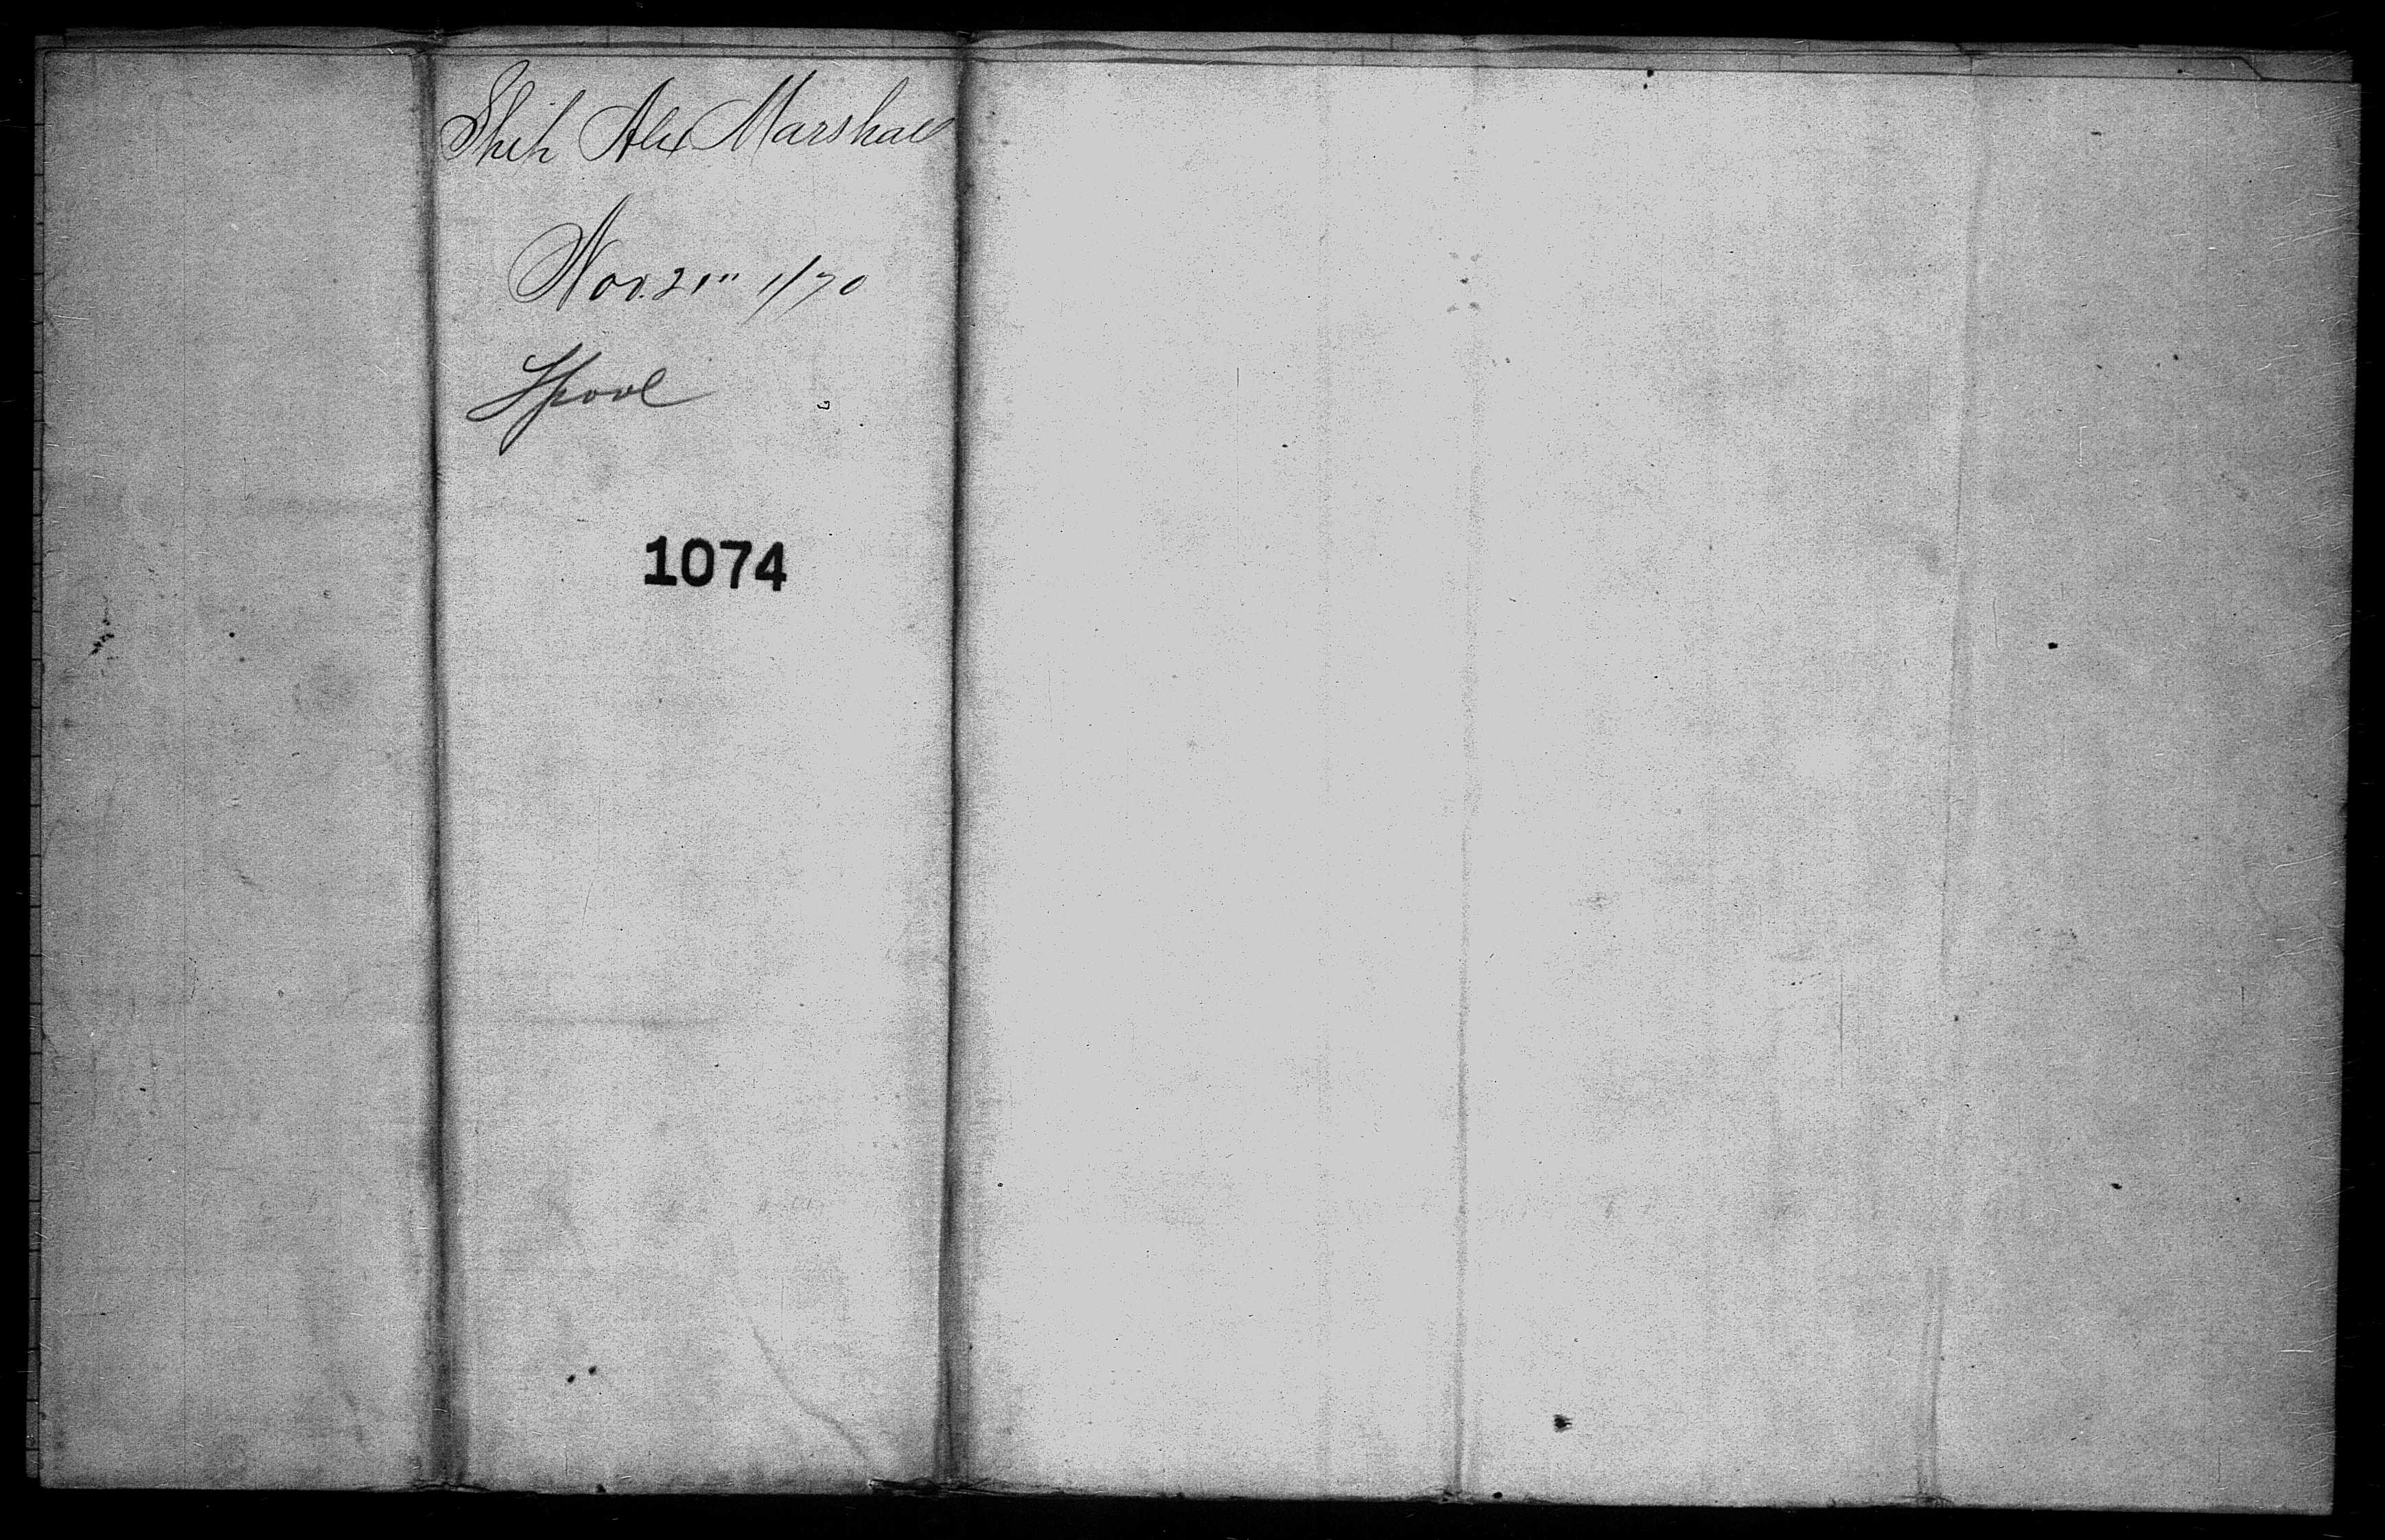 Ship Alex Marshall
Nov. 21" 1/70
Lpool
1074